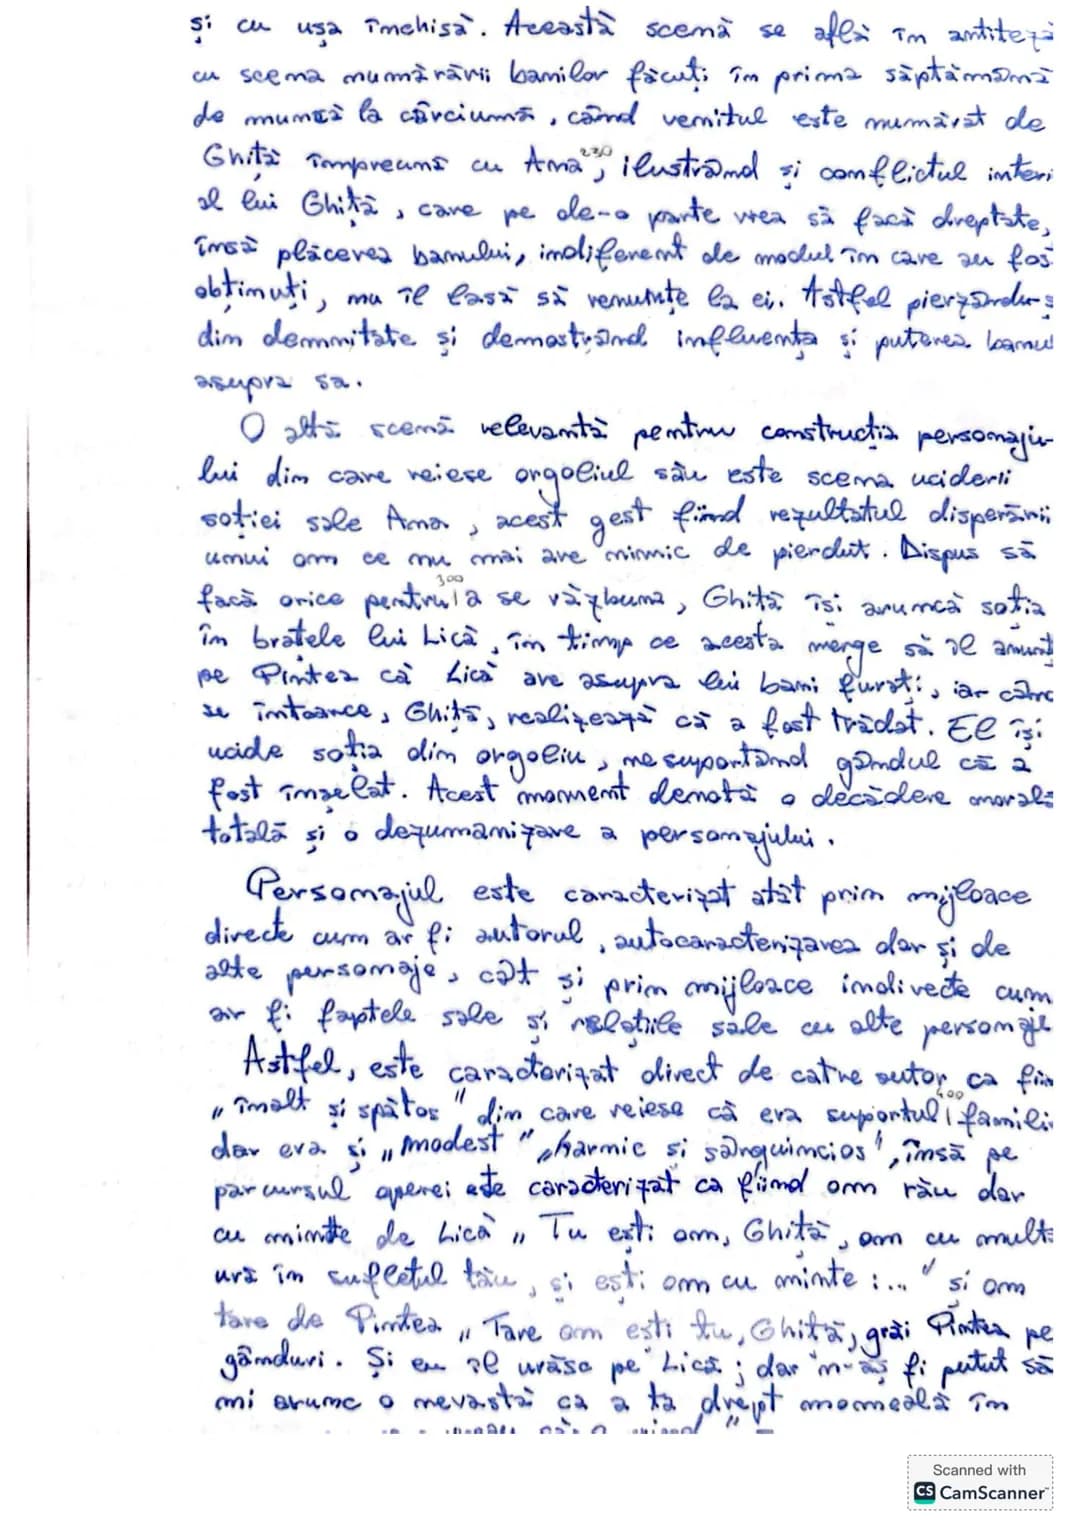 și cu ușa închisă. Această scenă se află în antiteză
cu scena numărării banilor făcuți în prima săptămână
de muncă la cârciumă, când venitul este numărat de
Ghiță împreună cu Ana, ilustrând și conflictul interi
230
al lui Ghiță, care pe de-o parte vrea să facă dreptate,
însă plăcerea banului, indiferent de modul în care au fos
obținuți, nu îl lasă să renunțe la ei. Astfel pierzându-s
din demnitate și demostrând influența și puterea banul
asupra sa.
O altă scenă relevantă pentru construcția personaju-
lui din care reiese orgoliul său este scena uciderii
soției sale Ana, acest gest fiind rezultatul disperării
unui om ce nu mai are nimic de pierdut. Dispus să
300
facă orice pentru a se răzbuna, Ghiță își aruncă soția
în brațele lui Lică, în timp ce acesta merge să îl anunț
pe Pintea că Lică are asupra lui bani furați, iar când
se întoarce, Ghiță, realizează că a fost trădat. El își
ucide soția din orgoliu, nesuportând gândul că a
fost înșelat. Acest moment denotă o decădere morală
totală și o dezumanizare a personajului.
Personajul este caracterizat atât prin mijloace
directe cum ar fi autorul, autocaracterizarea dar și de
alte personaje, cât și prin mijloace indirecte cum
ar fi faptele sale și relațiile sale cu alte personaje
Astfel, este caracterizat direct de catre autor ca fiin
400
„înalt și spătos" din care reiese că era suportul famili
dar era și „modest" „harnic și sânguincios", însă pe
parcursul operei este caracterizat ca fiind om rău dar
cu minte de Lică „Tu ești om, Ghiță, om cu multă
ură în sufletul tău, și ești om cu minte :..." și om
tare de Pintea „Tare om ești tu, Ghiță, grăi Pintea pe
gânduri. Și eu îl urăsc pe Lică; dar n-aș fi putut să
mi arunc o nevastă ca a ta drept momeală în
Scanned with
CS CamScanner